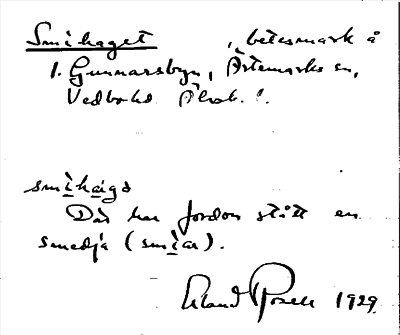 Smihaget , betesmark å
1. Gunnarsbyn, Årtemarks sn,
Vedbo hd
smìhàigə
Där har fordom stått en
smedja (smìa).
Erland Rosell 1929